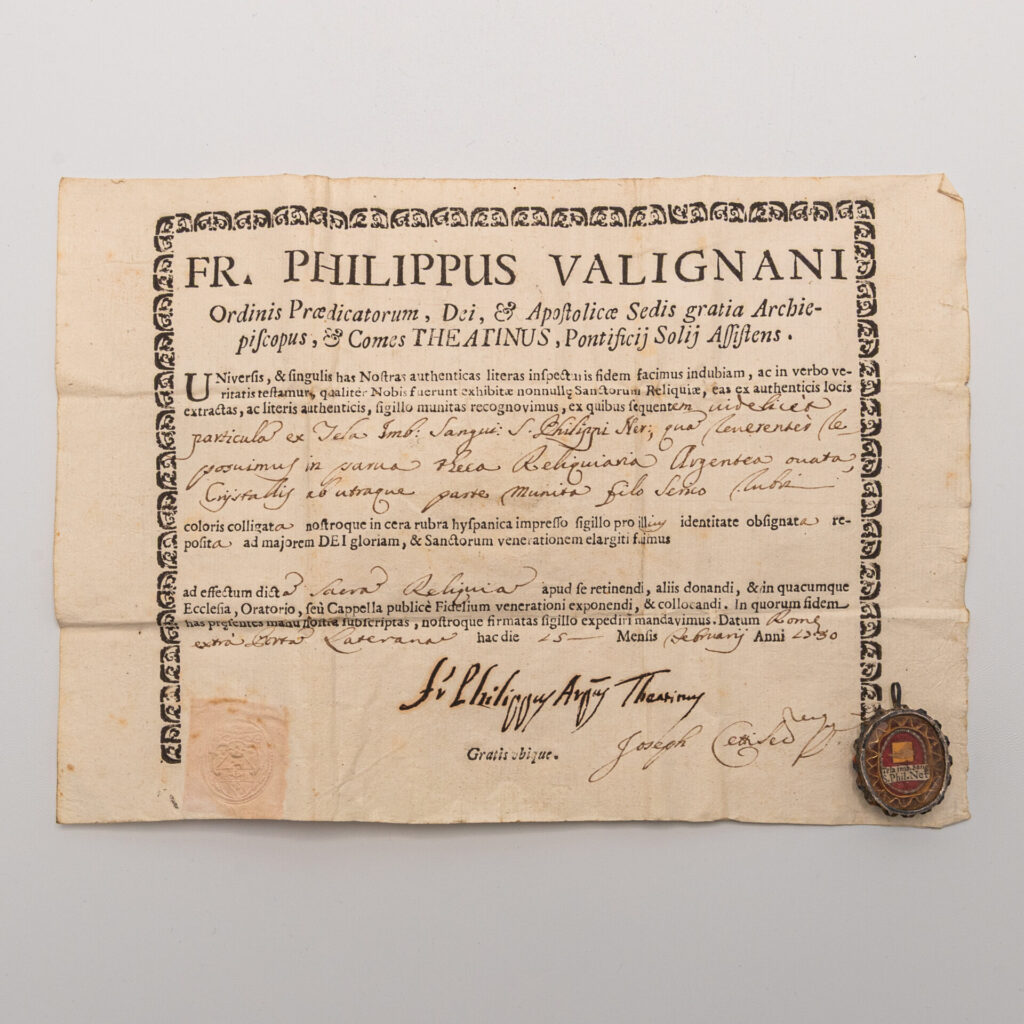 FR. PHILIPPUS VALIGNANI
Ordinis Prædicatorum, Dei, & Apoſtolicæ Sedis gratia Archie-
piſcopus, & Comes THEATINUS, Pontificij Solij Aſſiſtens.
UNiversis, & singulis has Nostras authenticas literas inspecturis fidem facimus indubiam, ac in verbo ve-
ritatis testamur, qualitèr Nobis fuerunt exhibitæ nonnullę Sanctorum Reliquiæ, eas ex authenticis locis
extractas, ac literis authenticis, sigillo munitas recognovimus, ex quibus sequentem videlicèt
particula ex Tela Imb: Sangui: S. Philippi Ner; qua reverentèr re-
posuimus in parva theca Reliquiaria Argentea ovata,
Crystallis ab utraque parte munita filo serico rubri
coloris colligata nostroque in cera rubra hyspanica impresso sigillo pro illius identitate obsignata re-
posita ad majorem DEI gloriam, & Sanctorum venerationem elargiti fuimus
ad effectum dicta Sacra Reliquia apud se retinendi, aliis donandi, & in quacumque
Ecclesia, Oratorio, seù Cappella publicè Fidelium venerationi exponendi, & collocandi. In quorum fidem
has presentes manu nostra subscriptas, nostroque firmatas sigillo expediri mandavimus. Datum Romę
extra Porta Laterana hac die 25 Mensis Februarij Anni 1730
Fr Philippus Arpus Theatinus
Joseph
Gratis ubique.
S. Phil. Ner